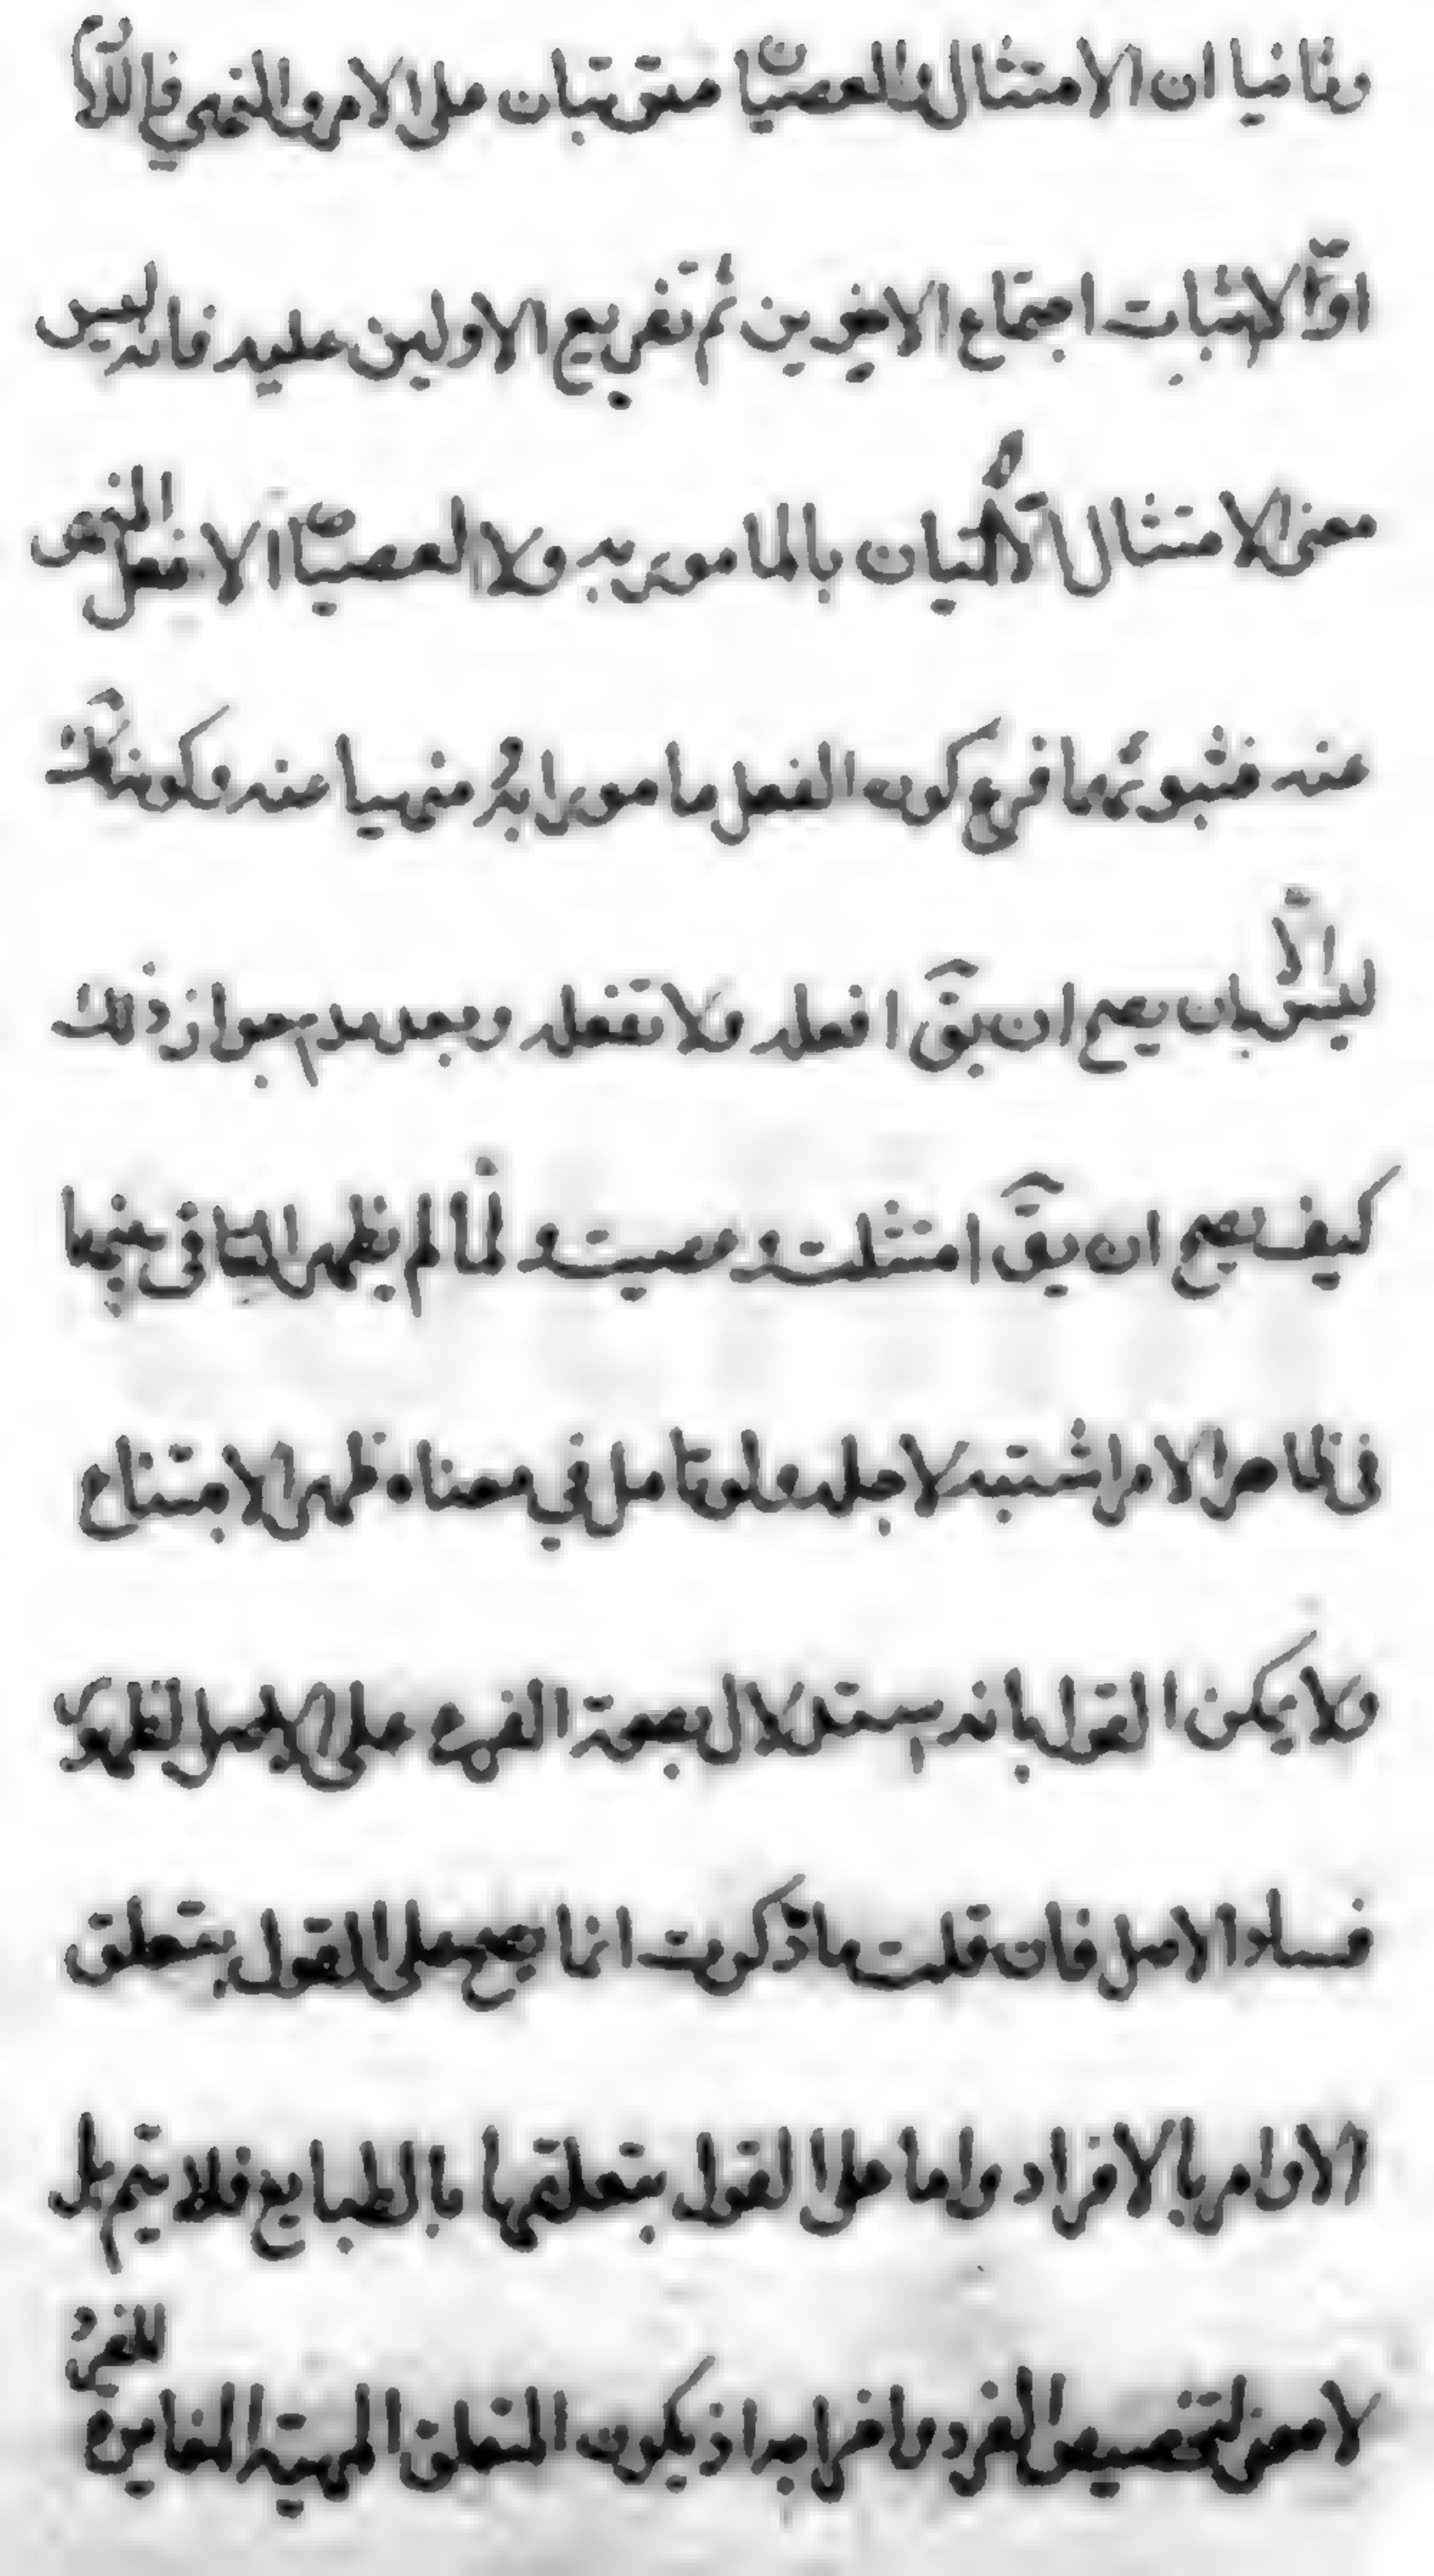 وثانيا ان الامتثال والعصيان متوتبان على الامر والنهى فاللازم
اوّلا اثبات اجتماع الاخيرين ثم تفريع الاولين عليه فانه ليس
معنى الامتثال الّا الاتيان بالمامور به ولا العصيان الا فعل المنهى
عنه فثبوتهما فرع كون الفعل مامورا به و منهيا عنه وكونه كك
ليس الّا بان يصح ان يقّ افعله ولا تفعله وبعد عدم جواز ذلك
كيف يصح ان يقّ امتثلت و عصيت و لمّا لم يظهر التنافى بينهما
فى ظاهر الامر اشتبه لاجله ولو تامل في معناه ظهر الامتناع
ولا يمكن القول بانه يستدلال بصحة الفرع على الاصل لظهور
فساد الاصل فان قلت ما ذكرت انما يصح على القول بتعلق
الاوامر بالافراد واما على القول بتعلقها بالطبايع فلا يتم بل
لا معنى لتخصيص الفرد بافراده اذ يكون المتعلق المهيّة المغايرة للفرد